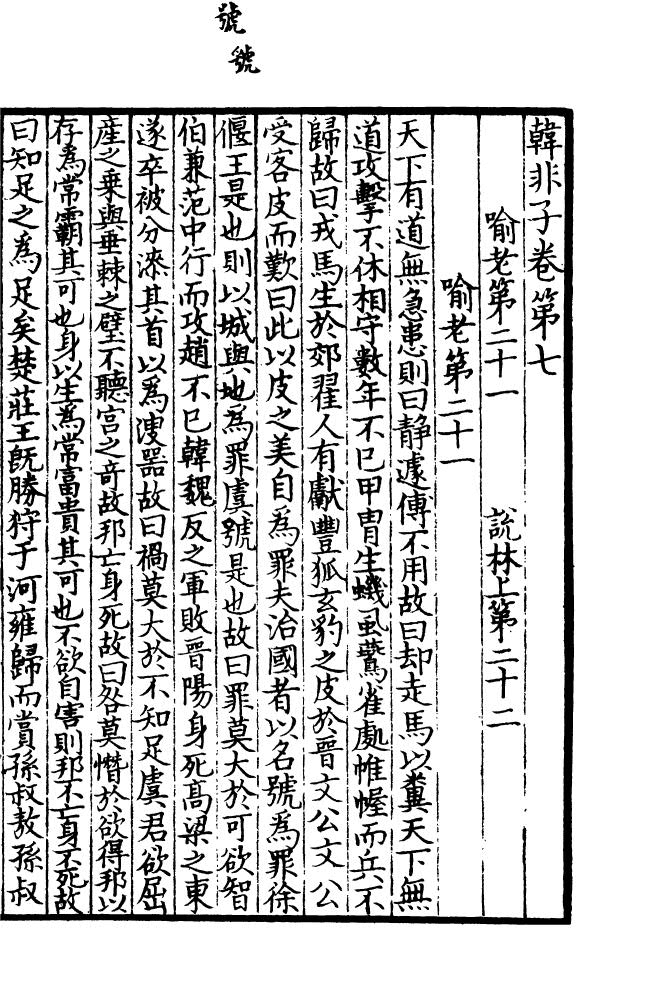 號
號
韓非子卷第七
喻老第二十一 說林上第二十二
喻老第二十一
天下有道無急患則曰静遽傅不用故曰却走馬以糞天下無
道攻擊不休相守數年不已甲冑生蟣虱鷰雀處帷幄而兵不
歸故曰戎馬生於郊翟人有獻豐狐玄豹之皮於晉文公文公
受客皮而歎曰此以皮之美自為罪夫治國者以名號為罪徐
偃王是也則以城與地為罪虞號是也故曰罪莫大於可欲智
伯兼范中行而攻趙不已韓魏反之軍敗晉陽身死高梁之東
遂卒被分漆其首以為溲器故曰禍莫大於不知足虞君欲屈
產之乗與垂棘之璧不聽宫之奇故邦亡身死故曰咎莫憯於欲得邦以
存為常霸其可也身以生為常富貴其可也不欲自害則邦不亡身不死故
曰知足之為足矣楚莊王既勝狩于河雍歸而賞孫叔敖孫叔